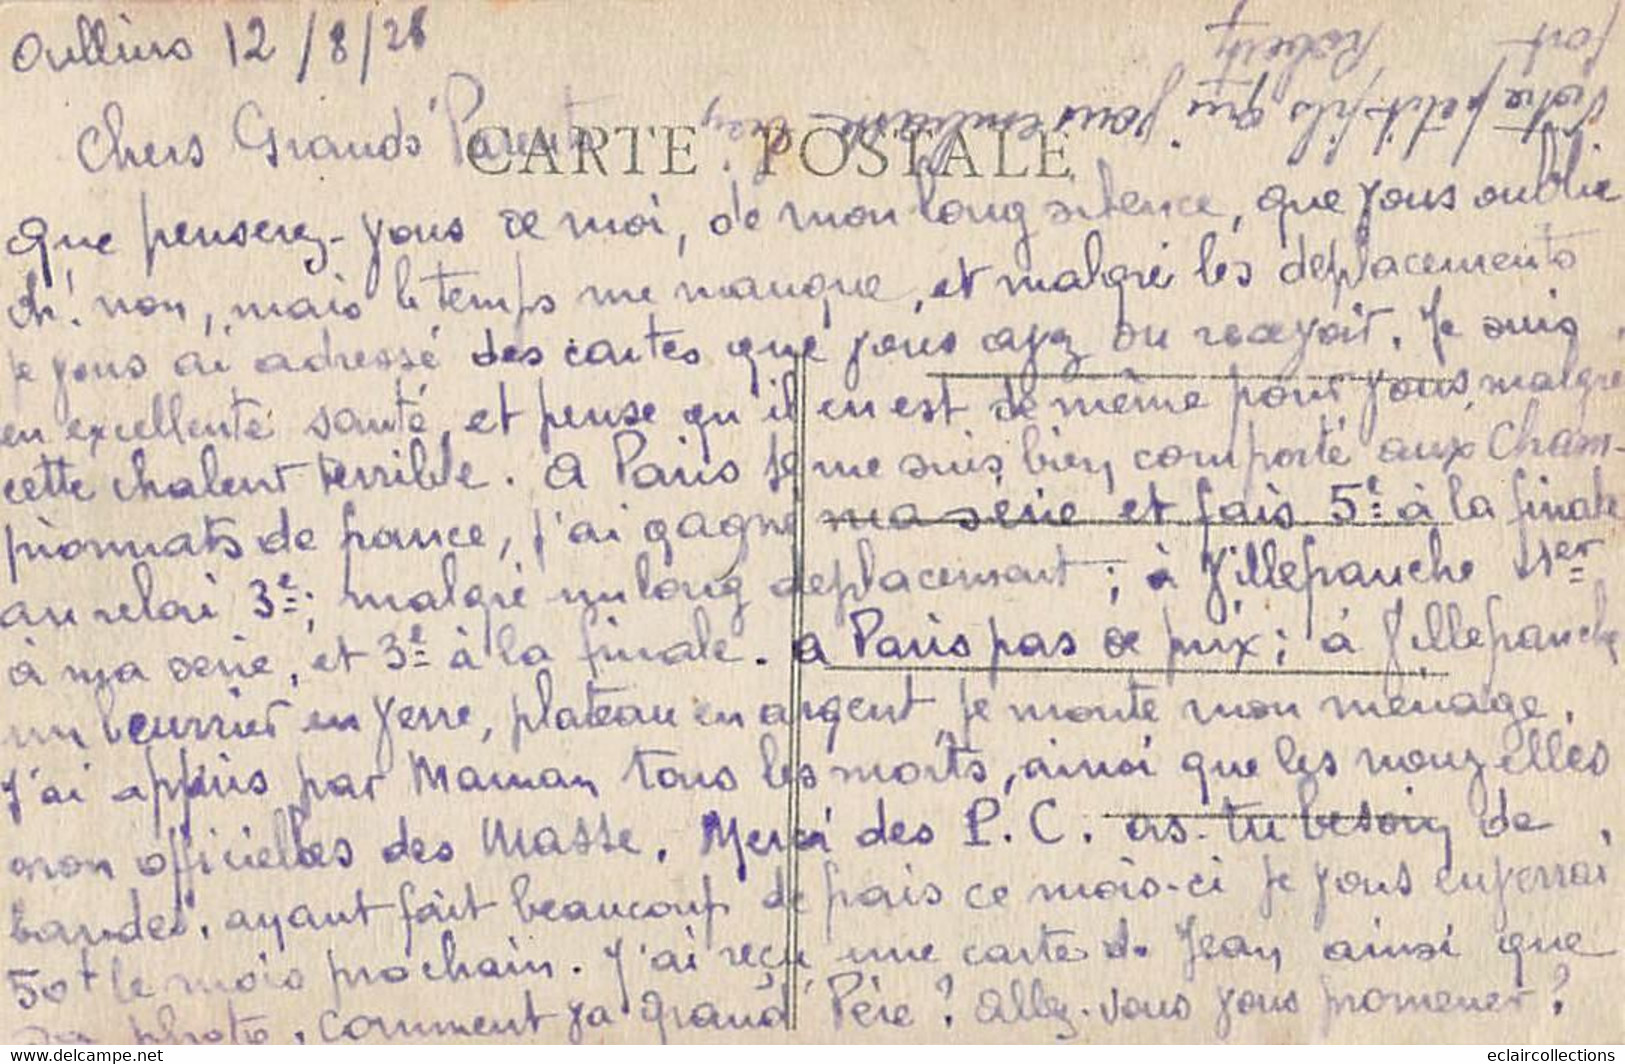 Oullins 12/8/28
Chers Grands Parents
CARTE POSTALE
que penserez-vous de moi, de mon long silence, que vous oublie
oh! non, mais le temps me manque, et malgré les déplacements
je vous ai adressé des cartes que vous avez du recevoir. Je suis
en excellente santé, et pense qu'il en est de même pour vous, malgré
cette chaleur terrible. A Paris je me suis bien comporté aux Cham-
pionnats de france, j'ai gagné ma série et fais 5e à la finale
au relai 3e; malgré un long déplacement; à Villefranche 1er
à ma série, et 3e à la finale. a Paris pas de prix; à Villefranche
un beurrier en verre, plateau en argent, je monte mon ménage.
J'ai appris par Maman tous les morts, ainsi que les nouvelles
non officielles des Masse. Merci des P.C. as-tu besoin de
bandes. ayant fait beaucoup de frais ce mois-ci je vous enverrai
50f le mois prochain. J'ai reçu une carte de Jean ainsi que
sa photo. Comment va Grand Père? Allez-vous vous promener?
Votre petit fils qui vous embrasse bien
fort
Robert
eclaircollections
www.delcampe.net